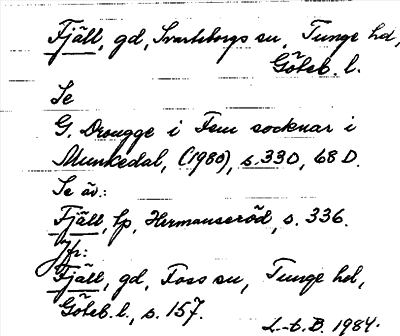 Fjäll, gd, Svarteborgs sn, Tunge hd,
Göteb. l.
Se
G. Drougge i Fem socknar i
Munkedal, (1980), s. 330, 68 D.
Se äv.:
Fjäll, lp, Hermanseröd, s. 336.
Jfr:
Fjäll, gd, Foss sn, Tunge hd,
Göteb. l., s. 157.
L-t. B. 1984.